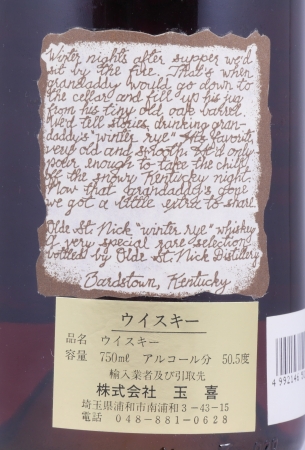 Winter nights after supper we'd
sit by the fire. That's when
grandaddy would go down to
the cellar and fill up his jug
from his tiny old oak barrel.
He'd tell stories drinking gran-
daddy's "winter rye". His favorite
very old and smooth. He'd only
pour enough to take the chill
off the snowy Kentucky night.
Now that grandaddy's gone
we got a little extra to share.
Olde St. Nick "winter rye" whisky
A very special rare selection
bottled by Olde St. Nick Distillery
Bardstown, Kentucky
ウイスキー
品名 ウイスキー
容量 750㎖ アルコール分 50.5度
輸入業者及び引取先
株式会社 玉喜
埼玉県浦和市南浦和3-43-15
電話 048-881-0628